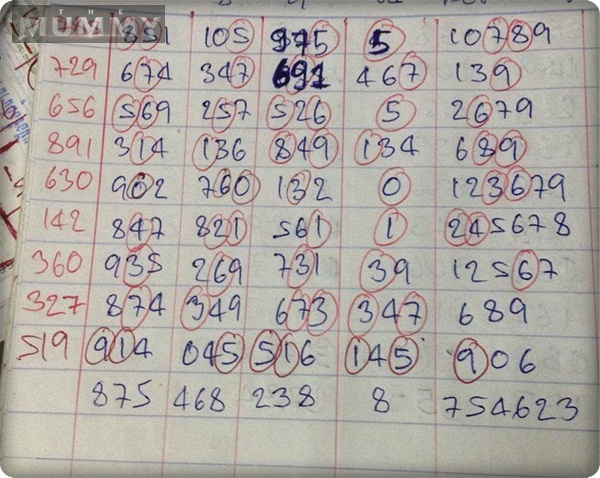 THE
MUMMY
851 105 975 5 10789
729 674 347 691 467 139
656 569 257 526 5 2679
891 314 136 849 134 689
630 902 760 132 0 123679
142 847 821 561 1 245678
360 935 269 731 39 12567
327 874 349 673 347 689
519 914 045 516 145 906
875 468 238 8 754623